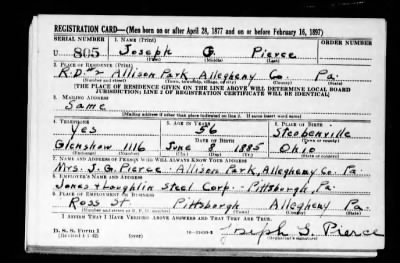 REGISTRATION CARD—(Men born on or after April 28, 1877 and on or before February 16, 1897)
SERIAL NUMBER 1. NAME (Print) ORDER NUMBER
U 805 Joseph G. Pierce
(First) (Middle) (Last)
2. PLACE OF RESIDENCE (Print)
R.D.#2 Allison Park Allegheny Co. Pa.
(Number and street) (Town, township, village, or city) (County) (State)
[THE PLACE OF RESIDENCE GIVEN ON THE LINE ABOVE WILL DETERMINE LOCAL BOARD
JURISDICTION; LINE 2 OF REGISTRATION CERTIFICATE WILL BE IDENTICAL]
3. MAILING ADDRESS
Same
[Mailing address if other than place indicated on line 2. If same insert word same]
4. TELEPHONE 5. AGE IN YEARS 6. PLACE OF BIRTH
Yes 56 Steubenville
DATE OF BIRTH (Town or county)
Glenshaw 1116 June 8 1885 Ohio
(Exchange) (Number) (Mo.) (Day) (Yr.) (State or country)
7. NAME AND ADDRESS OF PERSON WHO WILL ALWAYS KNOW YOUR ADDRESS
Mrs. J. G. Pierce - Allison Park, Allegheny Co. Pa.
8. EMPLOYER'S NAME AND ADDRESS
Jones & Loughlin Steel Corp. - Pittsburgh, Pa.
9. PLACE OF EMPLOYMENT OR BUSINESS
Ross St. Pittsburgh Allegheny Pa.
(Number and street or R. F. D. number) (Town) (County) (State)
I AFFIRM THAT I HAVE VERIFIED ABOVE ANSWERS AND THAT THEY ARE TRUE.
D. S. S. Form 1 Joseph G. Pierce
(over) (Registrant's signature)